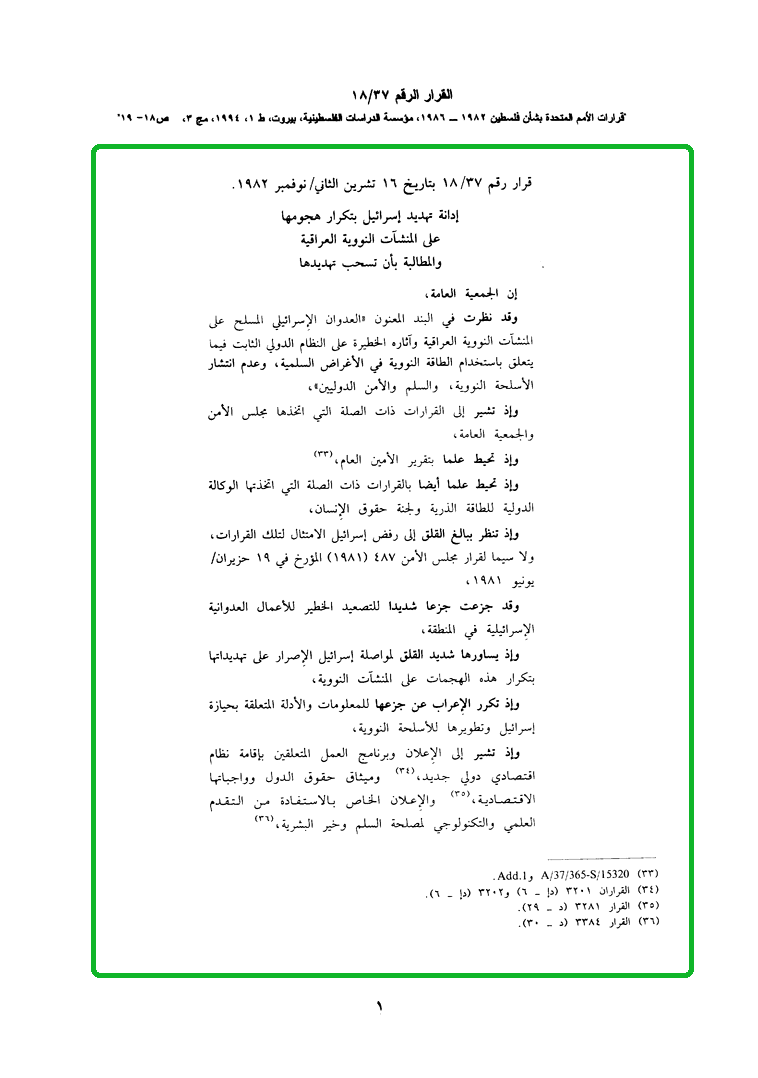 القرار الرقم ١٨/٣٧
"قرارات الأمم المتحدة بشأن فلسطين ١٩٨٢ – ١٩٨٦، مؤسسة الدراسات الفلسطينية، بيروت، ط ١، ١٩٩٤، مج ٣، ص١٨- ١٩"
قرار رقم ١٨/٣٧ بتاريخ ١٦ تشرين الثاني/نوفمبر ١٩٨٢.
إدانة تهديد إسرائيل بتكرار هجومها
على المنشآت النووية العراقية
والمطالبة بأن تسحب تهديدها
إن الجمعية العامة،
وقد نظرت في البند المعنون «العدوان الإسرائيلي المسلح على
المنشآت النووية العراقية وآثاره الخطيرة على النظام الدولي الثابت فيما
يتعلق باستخدام الطاقة النووية في الأغراض السلمية، وعدم انتشار
الأسلحة النووية، والسلم والأمن الدوليين»،
وإذ تشير إلى القرارات ذات الصلة التي اتخذها مجلس الأمن
والجمعية العامة،
وإذ تحيط علما بتقرير الأمين العام،(٣٣)
وإذ تحيط علما أيضا بالقرارات ذات الصلة التي اتخذتها الوكالة
الدولية للطاقة الذرية ولجنة حقوق الإنسان،
وإذ تنظر ببالغ القلق إلى رفض إسرائيل الامتثال لتلك القرارات،
ولا سيما لقرار مجلس الأمن ٤٨٧ (١٩٨١) المؤرخ في ١٩ حزيران/
يونيو ١٩٨١،
وقد جزعت جزعا شديدا للتصعيد الخطير للأعمال العدوانية
الإسرائيلية في المنطقة،
وإذ يساورها شديد القلق لمواصلة إسرائيل الإصرار على تهديداتها
بتكرار هذه الهجمات على المنشآت النووية،
وإذ تكرر الإعراب عن جزعها للمعلومات والأدلة المتعلقة بحيازة
إسرائيل وتطويرها للأسلحة النووية،
وإذ تشير إلى الإعلان وبرنامج العمل المتعلقين بإقامة نظام
اقتصادي دولي جديد،(٣٤) وميثاق حقوق الدول وواجباتها
الاقتصادية،(٣٥) والإعلان الخاص بالاستفادة من التقدم
العلمي والتكنولوجي لمصلحة السلم وخير البشرية،(٣٦)
(٣٣) A/37/365-S/15320 و Add.1.
(٣٤) القراران ٣٢٠١ (دإ – ٦) و٣٢٠٢ (دإ – ٦).
(٣٥) القرار ٣٢٨١ (د – ٢٩).
(٣٦) القرار ٣٣٨٤ (د – ٣٠).
١